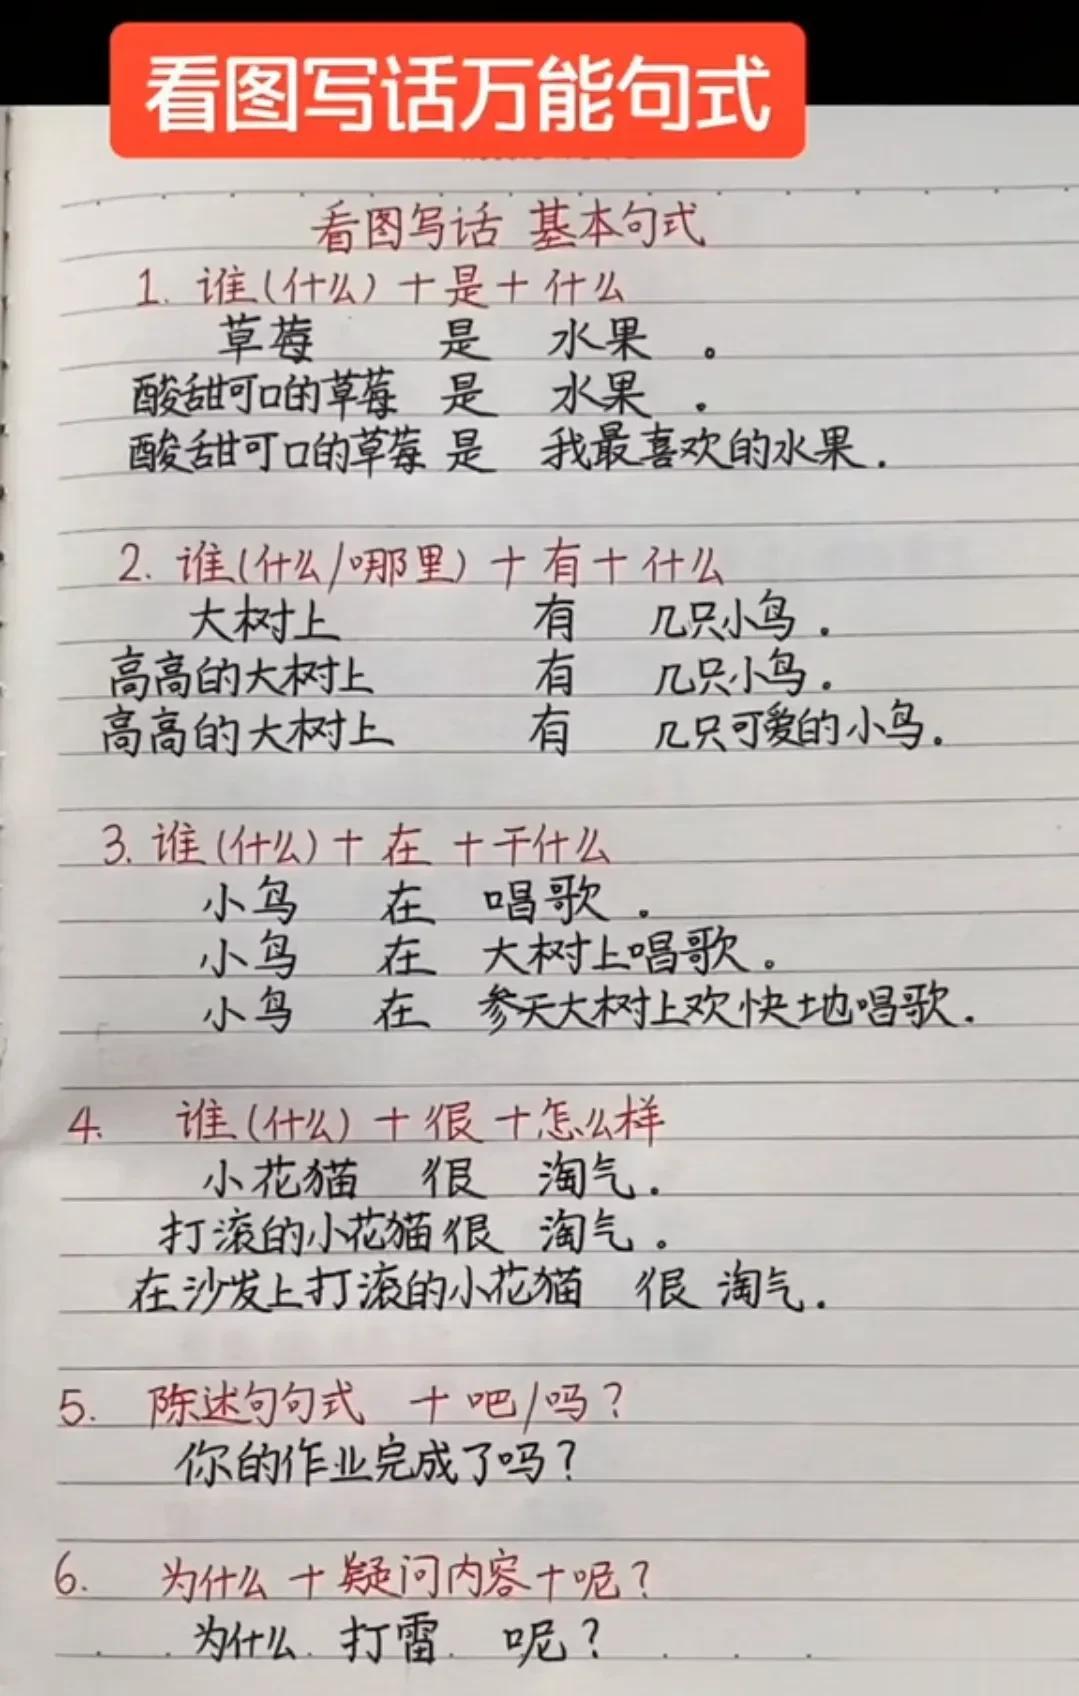 看图写话万能句式
看图写话 基本句式
1. 谁(什么)+是+什么
草莓 是 水果 。
酸甜可口的草莓 是 水果 .
酸甜可口的草莓 是 我最喜欢的水果.
2. 谁(什么/哪里)+有+什么
大树上 有 几只小鸟.
高高的大树上 有 几只小鸟.
高高的大树上 有 几只可爱的小鸟.
3. 谁(什么)+在+干什么
小鸟 在 唱歌 .
小鸟 在 大树上唱歌。
小鸟 在 参天大树上欢快地唱歌.
4. 谁(什么)+很+怎么样
小花猫 很 淘气.
打滚的小花猫很 淘气 .
在沙发上打滚的小花猫 很 淘气.
5. 陈述句句式 +吧/吗?
你的作业完成了吗?
6. 为什么+疑问内容+呢?
为什么 打雷 呢?